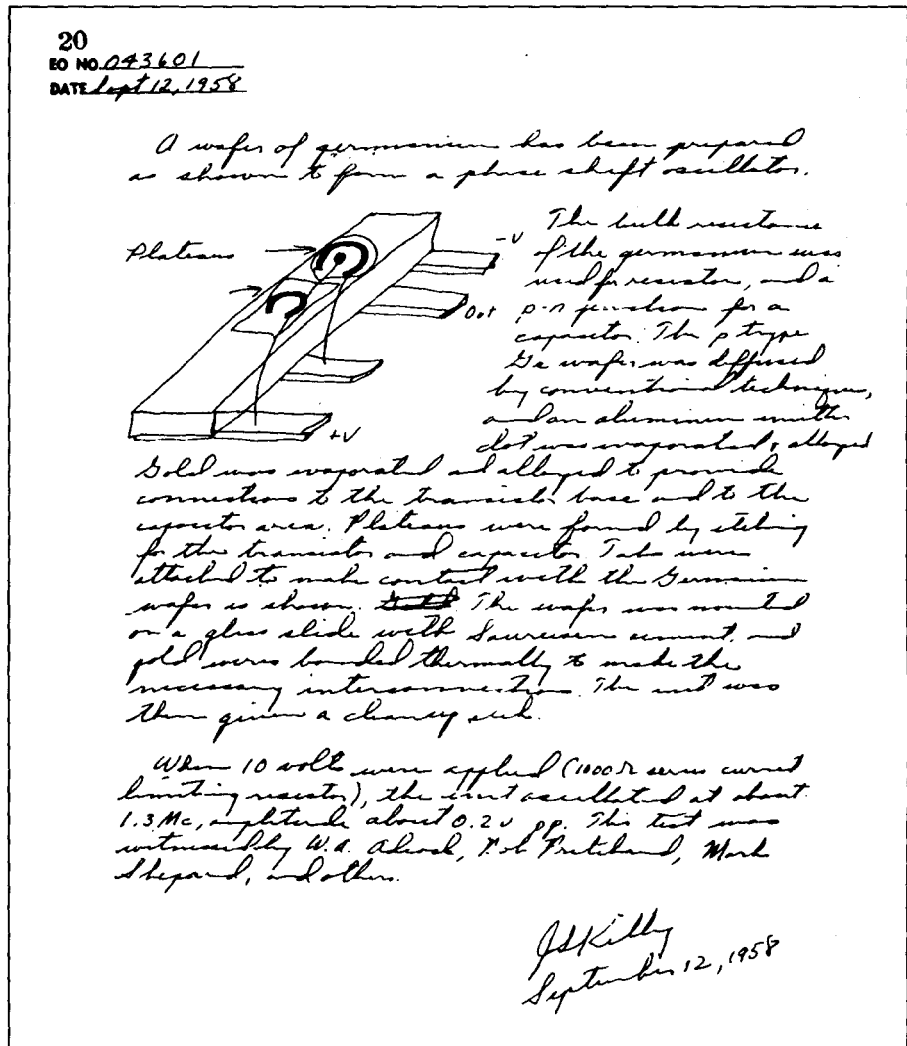 20
EO NO. 043601
DATE Sept 12, 1958
A wafer of germanium has been prepared
as shown to form a phase shift oscillator.
Plateaus
-V
Out
+V
The bulk resistance
of the germanium was
used for resistor, and a
p-n junction for a
capacitor. The p type
Ge wafer was diffused
by conventional techniques,
and an aluminum emitter
dot was evaporated & alloyed
Gold was evaporated and alloyed to provide
connections to the transistor base and to the
capacitor area. Plateaus were formed by etching
for the transistor and capacitor. Tabs were
attached to make contact with the Germanium
wafer as shown. The wafer was mounted
on a glass slide with Sauereisen cement, and
gold wires bonded thermally to make the
necessary interconnections. The unit was
then given a cleanup etch.
When 10 volts were applied (1000 Ω series current
limiting resistor), the unit oscillated at about
1.3 Mc, amplitude about 0.2 v pp. This test was
witnessed by W.A. Adcock, Bob Pritchard, Mark
Shepard, and others.
JSKilby
September 12, 1958